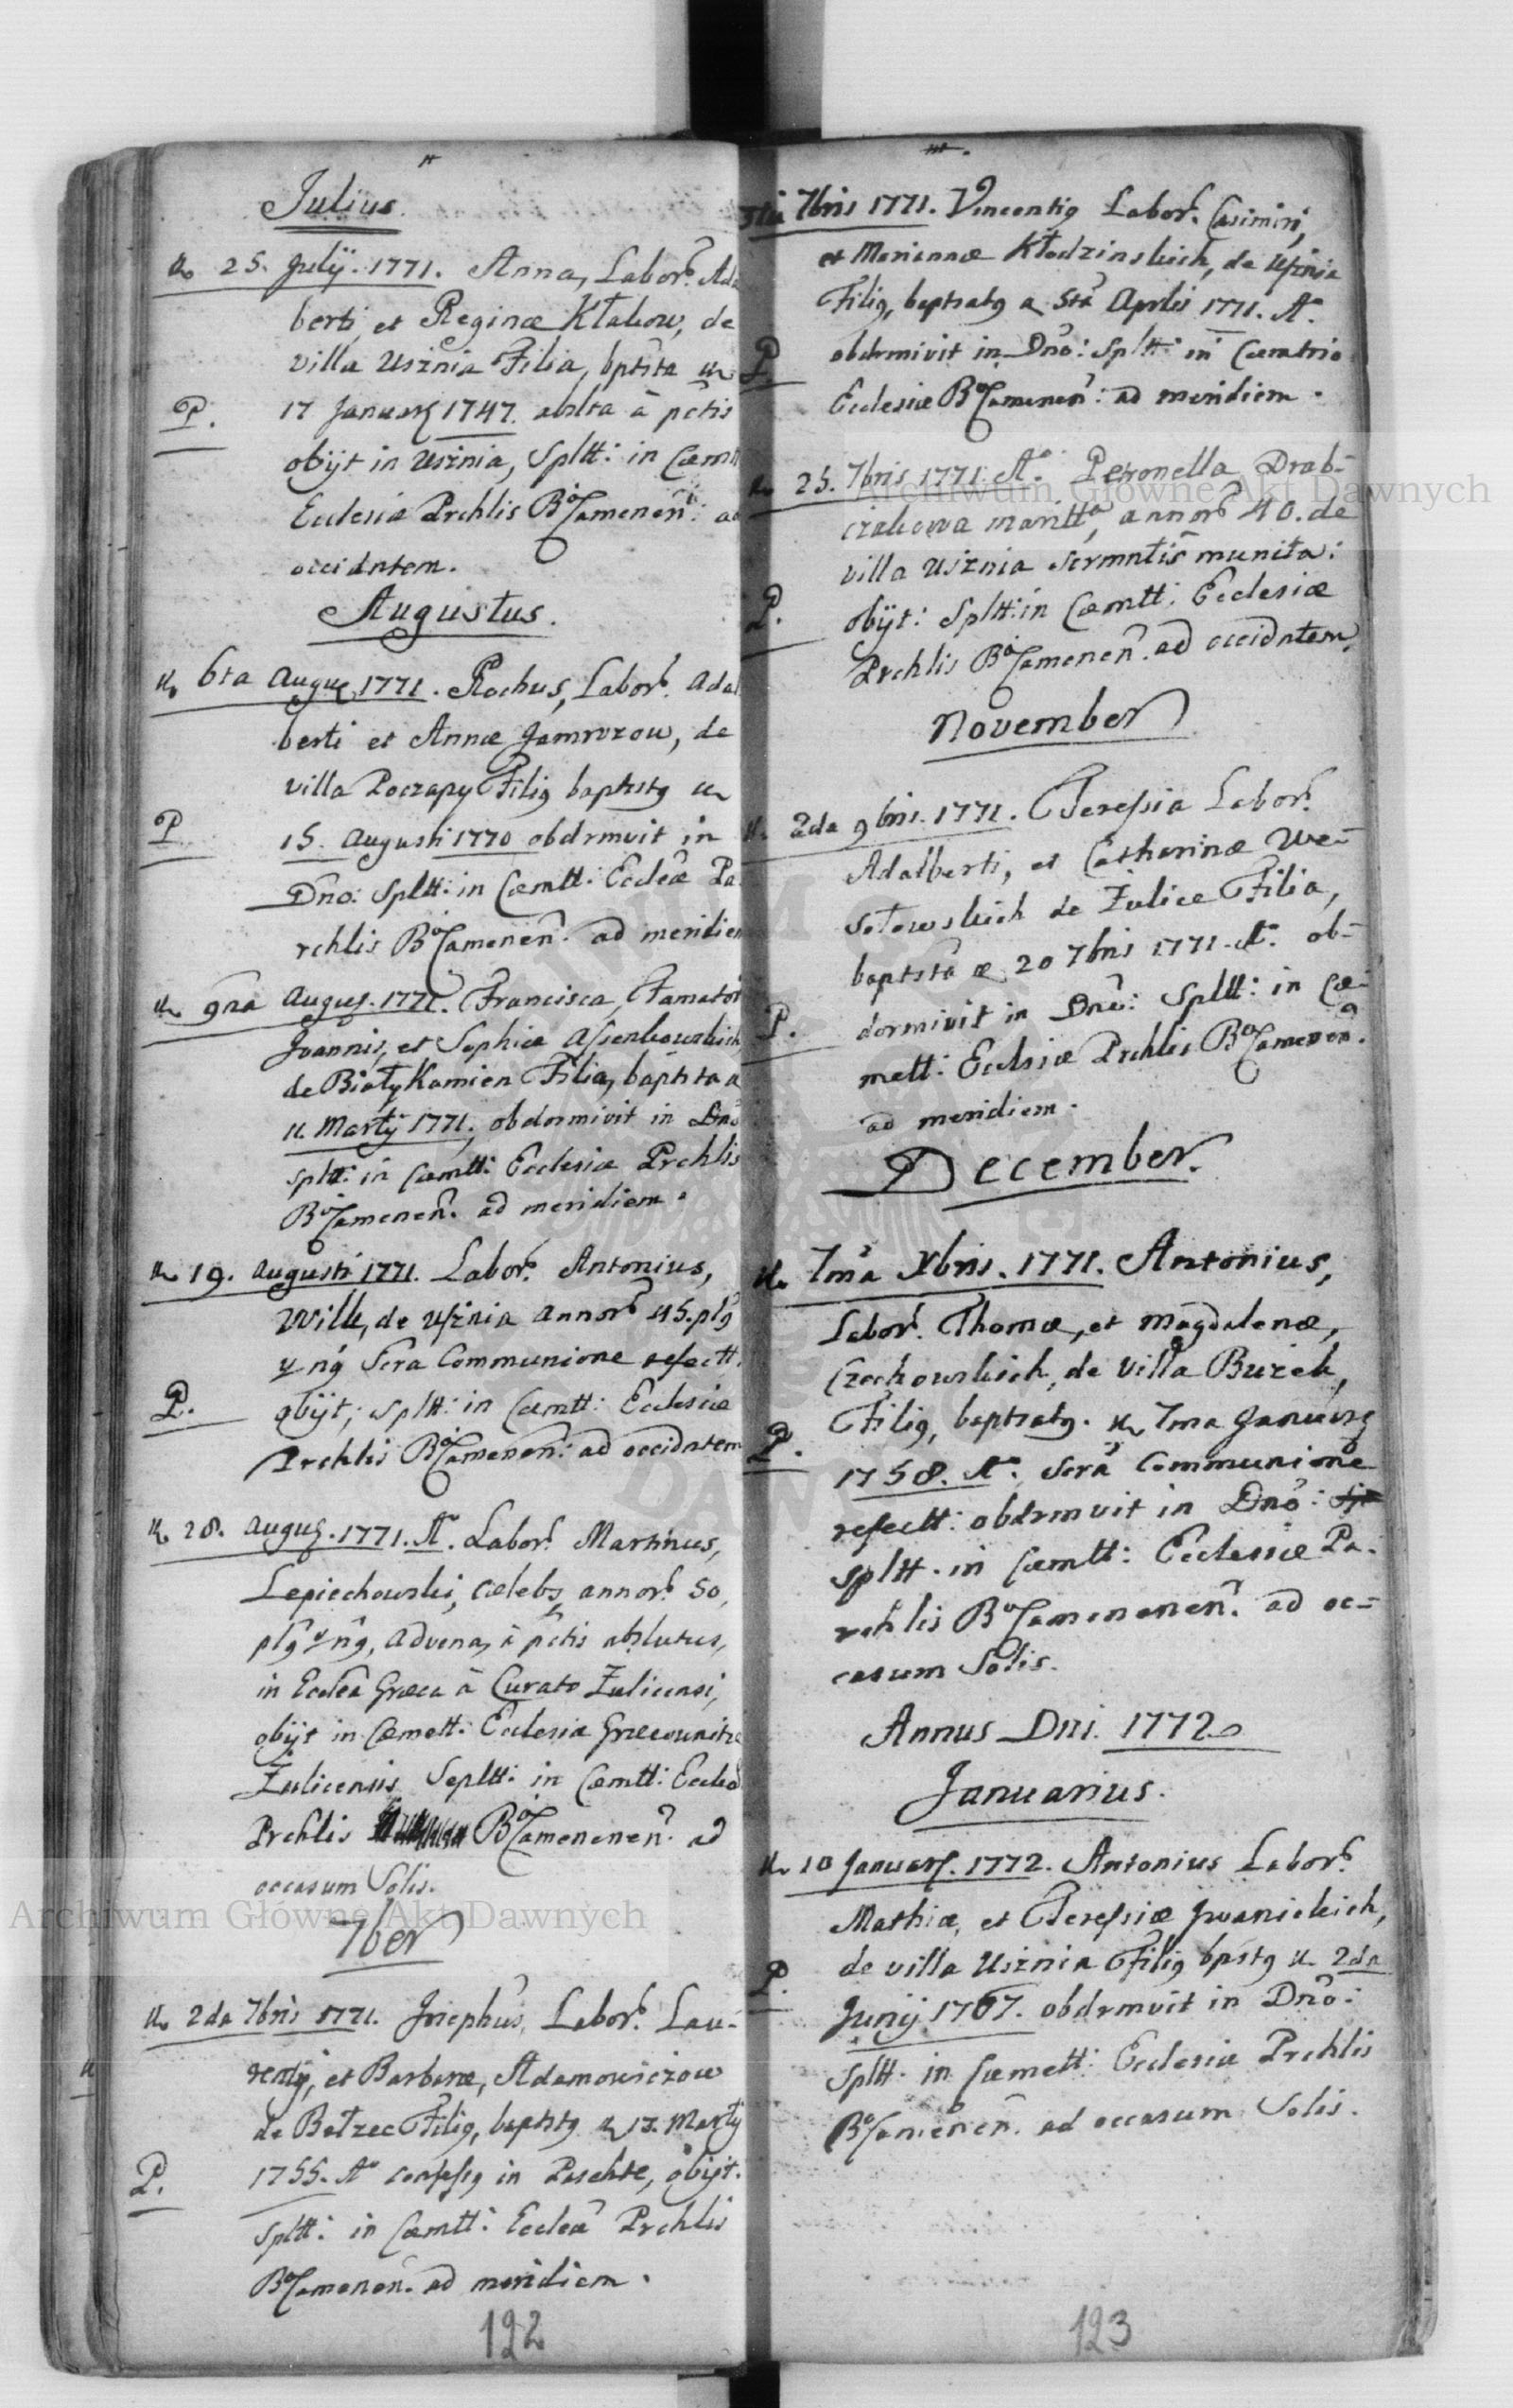 Julius.
25. Julij. 1771. Anna, Labor. Ada
berti et Reginæ Kłakow, de
villa Usznia Filia, bptsta
P. 17 Januarÿ 1747. abslta à pctis
obijt in Usznia, Spltt: in Cæmtt
Ecclesiæ Prchlis BCamenen: ad
occidntem.
Augustus.
6ta Augus. 1771. Rochus, Labor. Adal
berti et Annæ Jamrozow, de
villa Poczapy Filig baptstg
P 15. Augusti 1770 obdrmvit in
Dno: Spltt: in Cæmtt: Eccleæ Pa
rchlis BCamenen. ad meridiem
9na Augus. 1771. Francisca, Famator
Joannis, et Sophiæ
de BiałyKamien Filia, baptsta a
11. Martij 1771. obdormivit in Dno
spltt: in Cæmtt: Ecclesiæ Prchlis
BCamenen. ad meridiem.
19. Augusti 1771. Labor. Antonius,
Wilk, de Usznia annor 45. plg
ng Scra Communione refectt.
P. obijt, spltt: in Cæmtt: Ecclesiæ
Prchlis BCamenen: ad occidntem
28. Augus. 1771. Ao. Labor. Martinus,
Lepiechowski, cælebs, annor. 50,
plg ng, advena, à pctis abslutus,
in Ecclea Græca à Curato Zulicensi,
obijt in Cæmett: Ecclesiæ Græcounitæ
Zulicensis Sepltt: in Cæmtt: Eccleæ
Prchlis BCamenenen. ad
occasum Solis.
7ber
2da 7bris 1771. Josephus, Labor. Lau-
rentij, et Barbaræ, Adamowiczow
de Bełzec Filig, baptstg 13. Martij
P. 1755. Ao confessg in Paschte, obijt.
Spltt: in Cæmtt: Ecclea Prchlis
BCamenen. ad meridiem.
122
7bris 1771. Vincentig Labor. Casimiri,
et Mariannæ Kłodzinskich, de Usznia
Filig, baptsatg a 5ta Aprlis 1771. Ao.
P. obdrmivit in Dno: Spltt: in Cæmtrio
Ecclesiæ BCamenen: ad meridiem.
25. 7bris 1771. Ao. Petronella Drab-
czakowa maritta, annor 40. de
villa Usznia Scrmntis munita:
P. obijt: Spltt: in Cæmtt: Ecclesiæ
Prchlis BCamenen. ad occidntem.
November
2da 9bris. 1771. Theressia Labor.
Adalberti, et Catharinæ We-
sołowskich de Zulice Filia,
baptsta æ 20 7bris 1771. Ao. ob-
P. dormivit in Dno: Spltt: in Cæ-
mett: Ecclsiæ Prchlis BCamenen.
ad meridiem.
December.
7ma Xbris. 1771. Antonius,
Labor. Thomæ, et Magdalenæ,
Czechowskich, de Villa Buzek,
Filig, baptsatg. 7ma Januarÿ
P. 1758. Ao. Scra Communione
refectt: obdrmvit in Dno:
spltt. in Cæmtt: Ecclesiæ Pa-
rchlis BCamenenen. ad oc-
casum Solis.
Annus Dni. 1772
Januarius.
10 Januarÿ. 1772. Antonius Labor.
Mathiæ, et Theressiæ Jwanickich,
P. de villa Usznia Filig bpstg 2da
Junij 1767. obdrmvit in Dno:
Spltt. in Cæmett: Ecclesiæ Prchlis
BCamenen. ad occasum Solis.
123
Archiwum Główne Akt Dawnych
Archiwum Główne Akt Dawnych